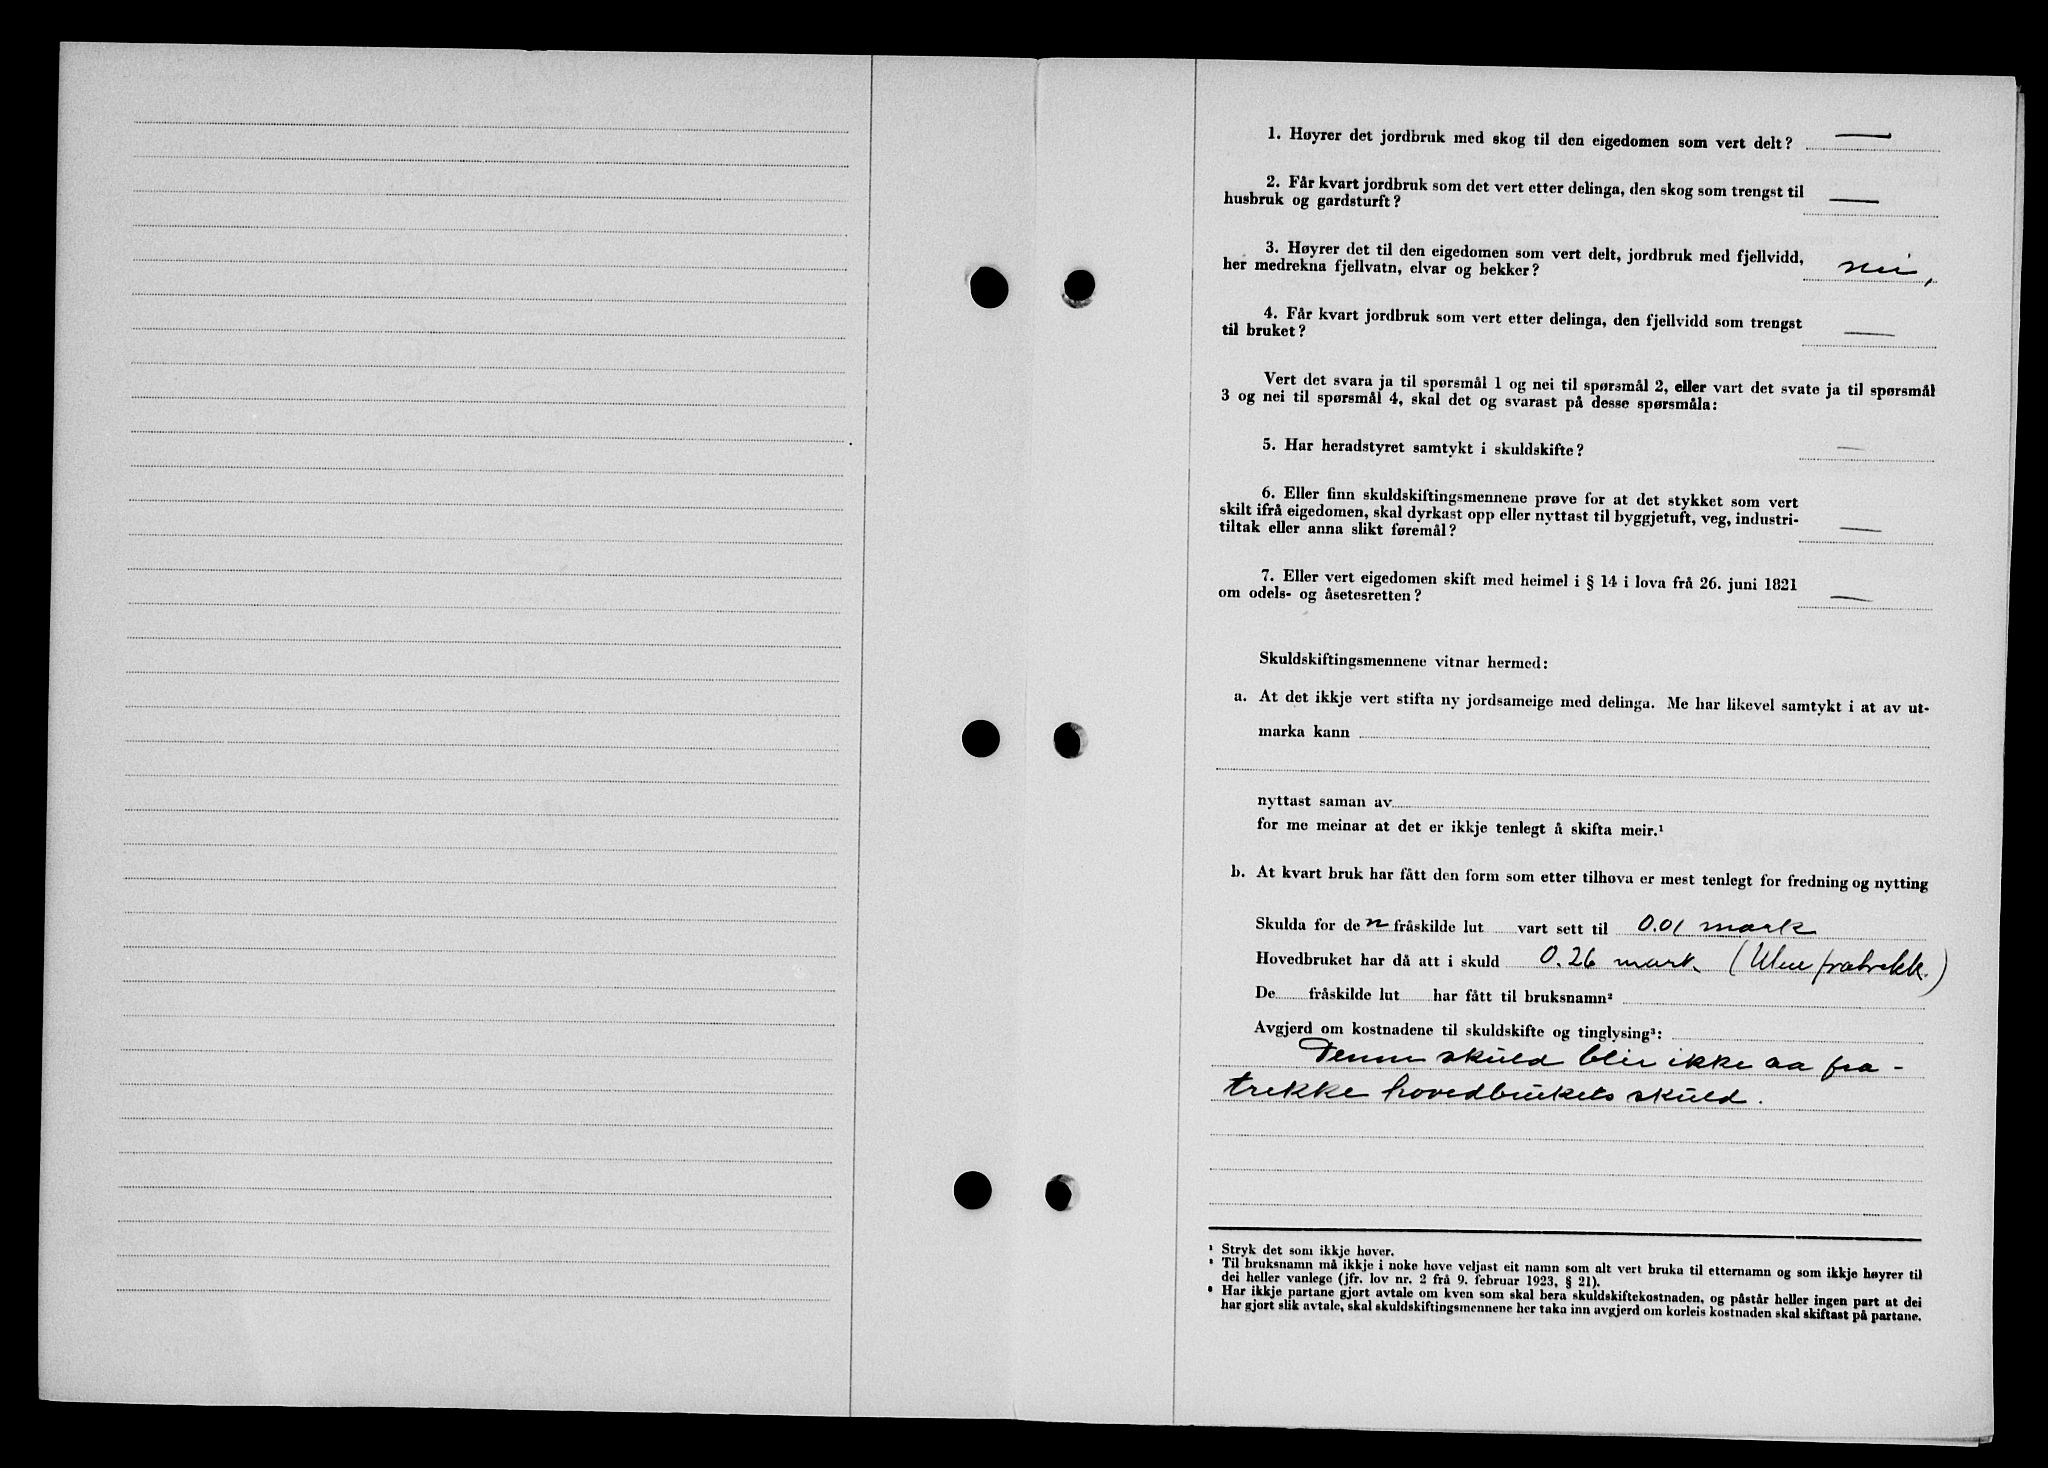 1. Høyrer det jordbruk med skog til den eigedomen som vert delt? —
2. Får kvart jordbruk som det vert etter delinga, den skog som trengst til
husbruk og gardsturft? —
3. Høyrer det til den eigedomen som vert delt, jordbruk med fjellvidd,
her medrekna fjellvatn, elvar og bekker? nei,
4. Får kvart jordbruk som vert etter delinga, den fjellvidd som trengst
til bruket? —
Vert det svara ja til spørsmål 1 og nei til spørsmål 2, eller vart det svate ja til spørsmål
3 og nei til spørsmål 4, skal det og svarast på desse spørsmåla:
5. Har heradstyret samtykt i skuldskifte? —
6. Eller finn skuldskiftingsmennene prøve for at det stykket som vert
skilt ifrå eigedomen, skal dyrkast opp eller nyttast til byggjetuft, veg, industri-
tiltak eller anna slikt føremål? —
7. Eller vert eigedomen skift med heimel i § 14 i lova frå 26. juni 1821
om odels- og åsetesretten? —
Skuldskiftingsmennene vitnar hermed:
a. At det ikkje vert stifta ny jordsameige med delinga. Me har likevel samtykt i at av ut-
marka kann
nyttast saman av
for me meinar at det er ikkje tenlegt å skifta meir.¹
b. At kvart bruk har fått den form som etter tilhøva er mest tenlegt for fredning og nytting
Skulda for den fråskilde lut vart sett til 0.01 mark
Hovedbruket har då att i skuld 0.26 mark (Uten fratrekk.)
De fråskilde lut har fått til bruksnamn²
Avgjerd om kostnadene til skuldskifte og tinglysing³:
Denne skuld blir ikke aa fra-
trekke hovedbrukets skuld.
¹ Stryk det som ikkje høver.
² Til bruksnamn må ikkje i noke høve veljast eit namn som alt vert bruka til etternamn og som ikkje høyrer til
dei heller vanlege (jfr. lov nr. 2 frå 9. februar 1923, § 21).
³ Har ikkje partane gjort avtale om kven som skal bera skuldskiftekostnaden, og påstår heller ingen part at dei
har gjort slik avtale, skal skuldskiftingsmennene her taka inn avgjerd om korleis kostnaden skal skiftast på partane.